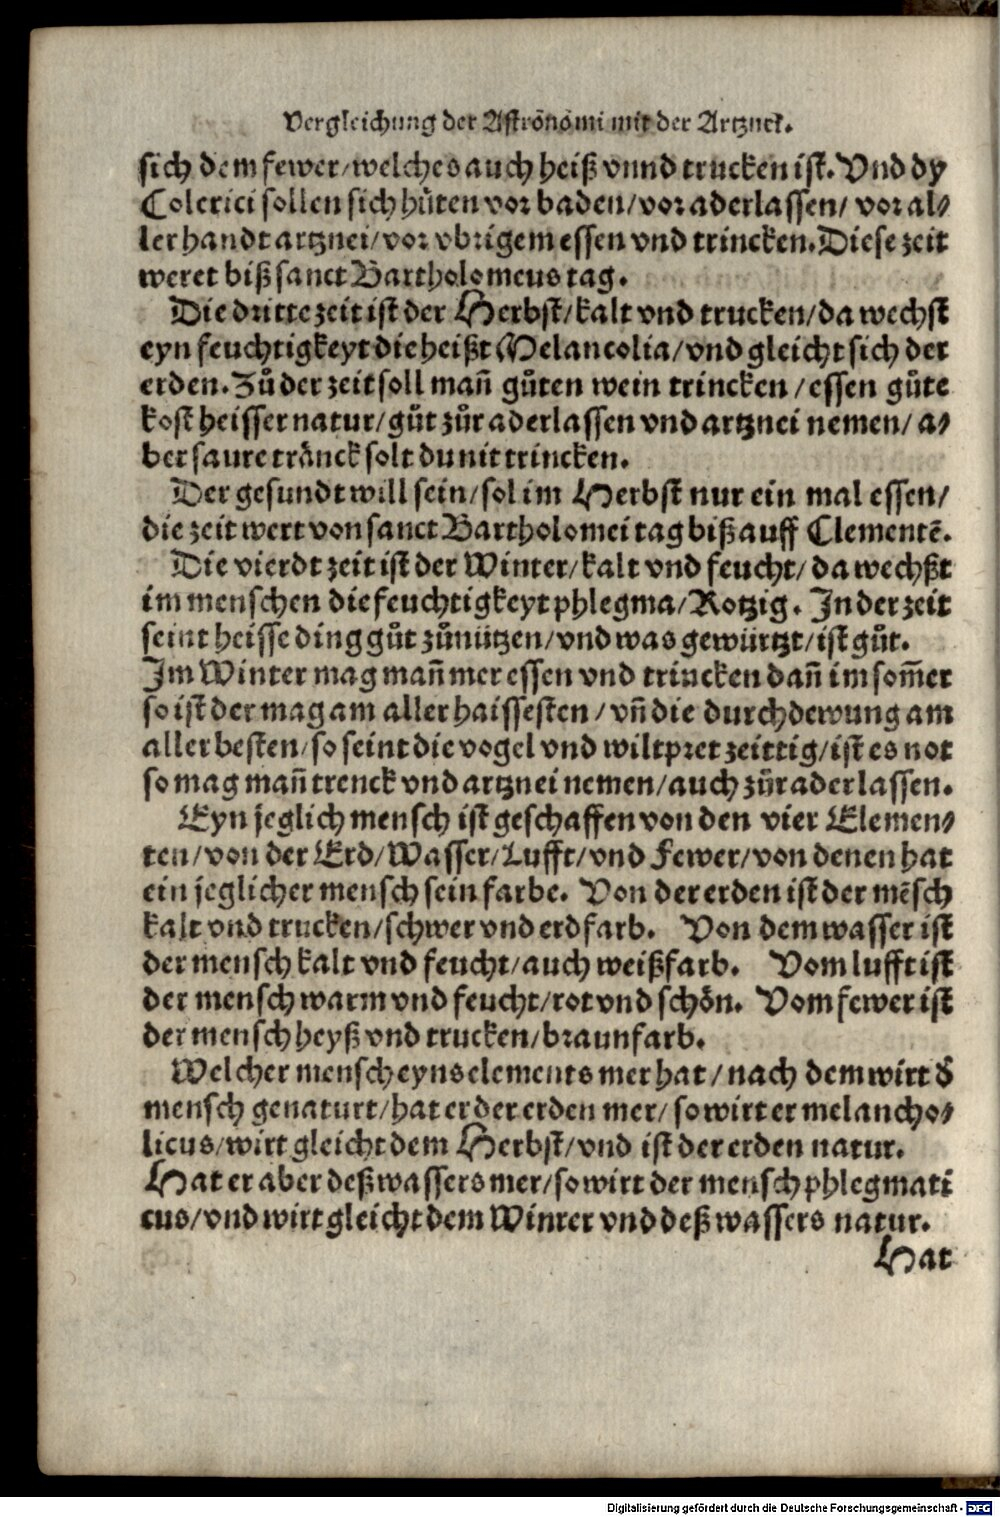 Vergleichung der Astronomi mit der Artznei.
sich dem fewer/welches auch heiß vnnd trucken ist. Vnd dy
Colerici sollen sich hüten vor baden/vor aderlassen/ vor al⸗
ler handt artznei/vor vbrigem essen vnd trincken. Diese zeit
weret biß sanct Bartholomeus tag.
Die dritte zeit ist der Herbst/kalt vnd trucken/da wechst
eyn feuchtigkeyt die heißt Melancolia/vnd gleicht sich der
erden. Zů der zeit soll mañ gůten wein trincken/essen gůte
kost heisser natur/gůt zůr aderlassen vnd artznei nemen/ a⸗
ber saure tränck solt du nit trincken.
Der gesundt will sein/sol im Herbst nur ein mal essen/
die zeit wert von sanct Bartholomei tag biß auff Clementē.
Die vierdt zeit ist der Winter/kalt vnd feucht/ da wechßt
im menschen die feuchtigkeyt phlegma/Rotzig. In der zeit
seint heisse ding gůt zůnützen/vnd was gewürtzt/ist gůt.
Im Winter mag mañ mer essen vnd trincken dañ im som̃er
so ist der mag am aller haissesten/vñ die durchdewung am
aller besten/so seint die vogel vnd wiltpret zeittig/ist es not
so mag mañ trenck vnd artznei nemen/auch zůr aderlassen.
Eyn jeglich mensch ist geschaffen von den vier Elemen⸗
ten/von der Erd/Wasser/Lufft/vnd Fewer/von denen hat
ein jeglicher mensch sein farbe. Von der erden ist der mēsch
kalt vnd trucken/schwer vnd erdfarb. Von dem wasser ist
der mensch kalt vnd feucht/auch weißfarb. Vom lufft ist
der mensch warm vnd feucht/rot vnd schön. Vom fewer ist
der mensch heyß vnd trucken/braunfarb.
Welcher mensch eyns elements mer hat/nach dem wirt d̃
mensch genaturt/hat er der erden mer/so wirt er melancho⸗
licus/wirt gleicht dem Herbst/vnd ist der erden natur.
Hat er aber deß wassers mer/so wirt der mensch phlegmati
cus/vnd wirt gleicht dem Winter vnd deß wassers natur.
Hat
Digitalisierung gefördert durch die Deutsche Forschungsgemeinschaft - DFG